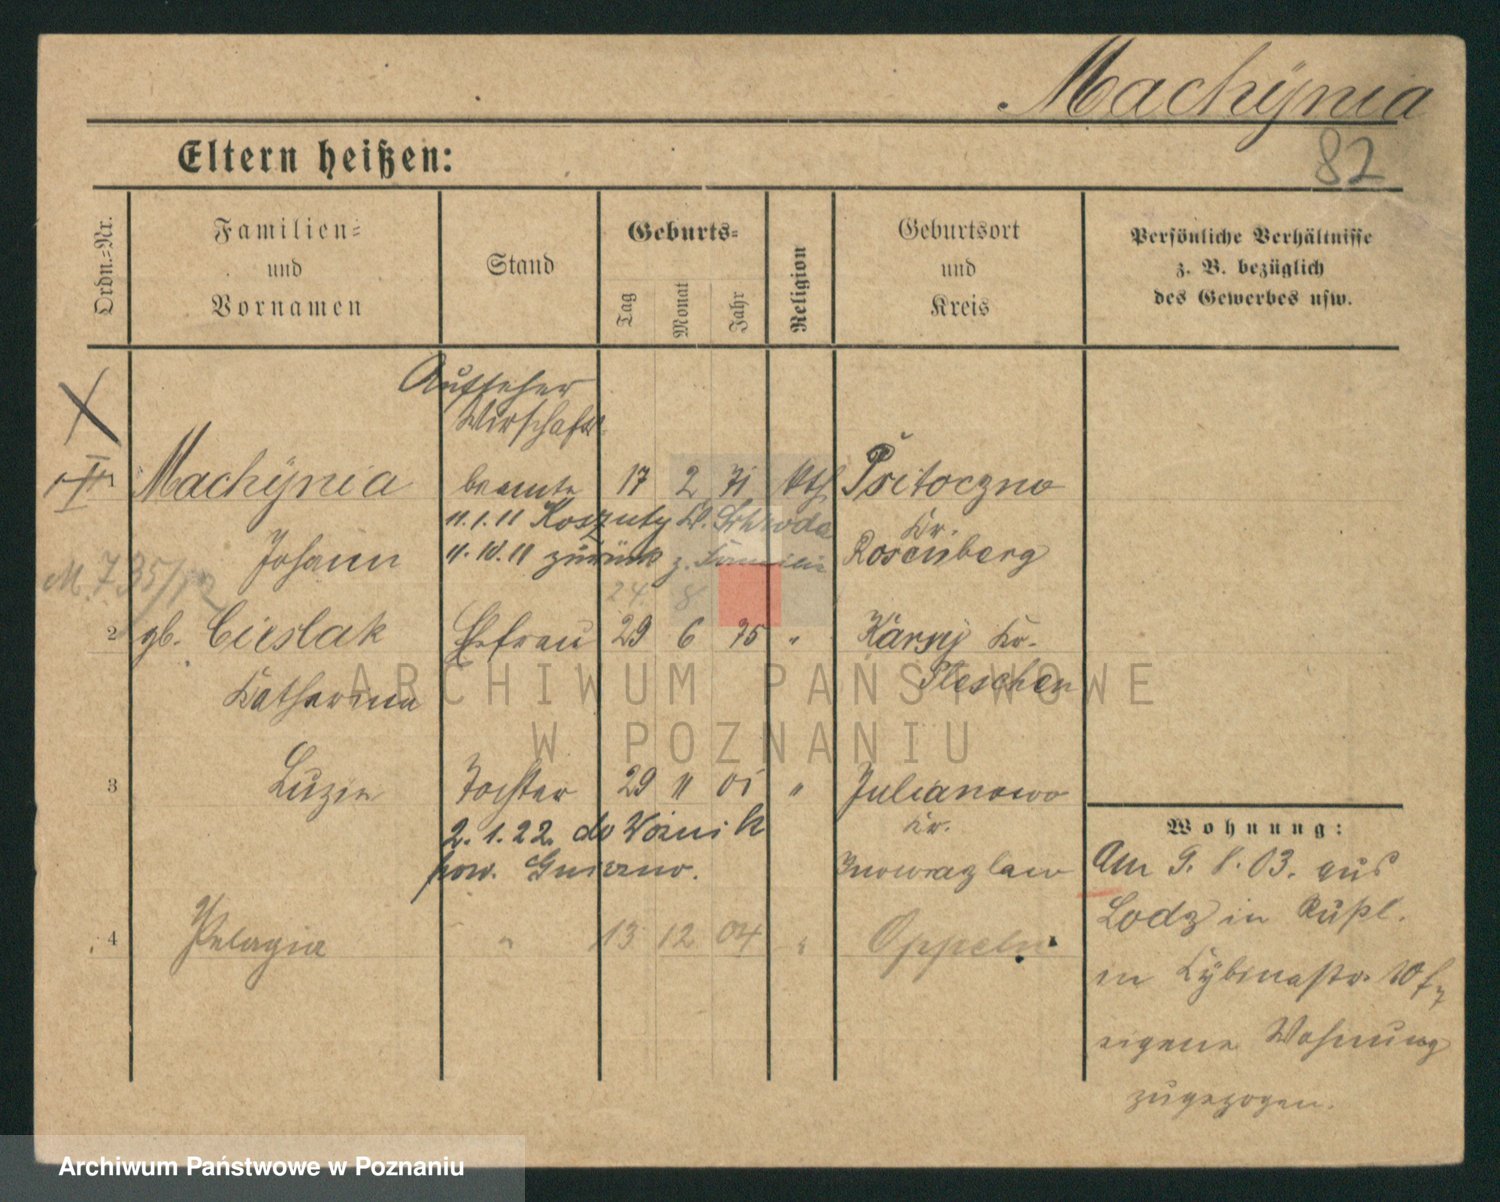 Machÿnia
82
Eltern heißen:
Ordn.-Nr.
Familien-
und
Vornamen
Stand
Geburts-
Tag
Monat
Jahr
Religion
Geburtsort
und
Kreis
Persönliche Verhältnisse
z. B. bezüglich
des Gewerbes usw.
Aufseher
Wirtschafts
1 Machÿnia beamte 17 2 71 kth Pritoczno
11.1.11 Koszuty Kr. Schroda Kr.
Johann 11.10.11 zurück z. Familie Rosenberg
M. 735/12
24. 8
2 gb. Cieslak Ehefrau 29 6 75 " Karsy Kr.
Katharina Pleschen
3 Luzie Tochter 29 11 01 " Julianowo
2.1.22. do Woznik Kr.
pow. Gniezno. Inowrazlaw
4 Pelagia " 13 12 04 " Oppeln
Wohnung:
Am 9. 8. 03. aus
Lodz in Rußl.
in
eigene Wohnung
zugezogen.
ARCHIWUM PAŃSTWOWE
W POZNANIU
Archiwum Państwowe w Poznaniu